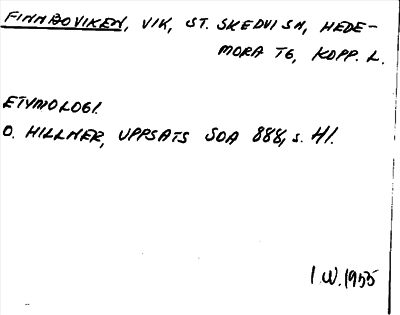 FINNBOVIKEN, VIK, ST. SKEDVI SN, HEDE-
MORA TG, KOPP. L.
ETYMOLOGI.
O. HILLNER, UPPSATS SOA 888, s. 41.
I.W. 1955